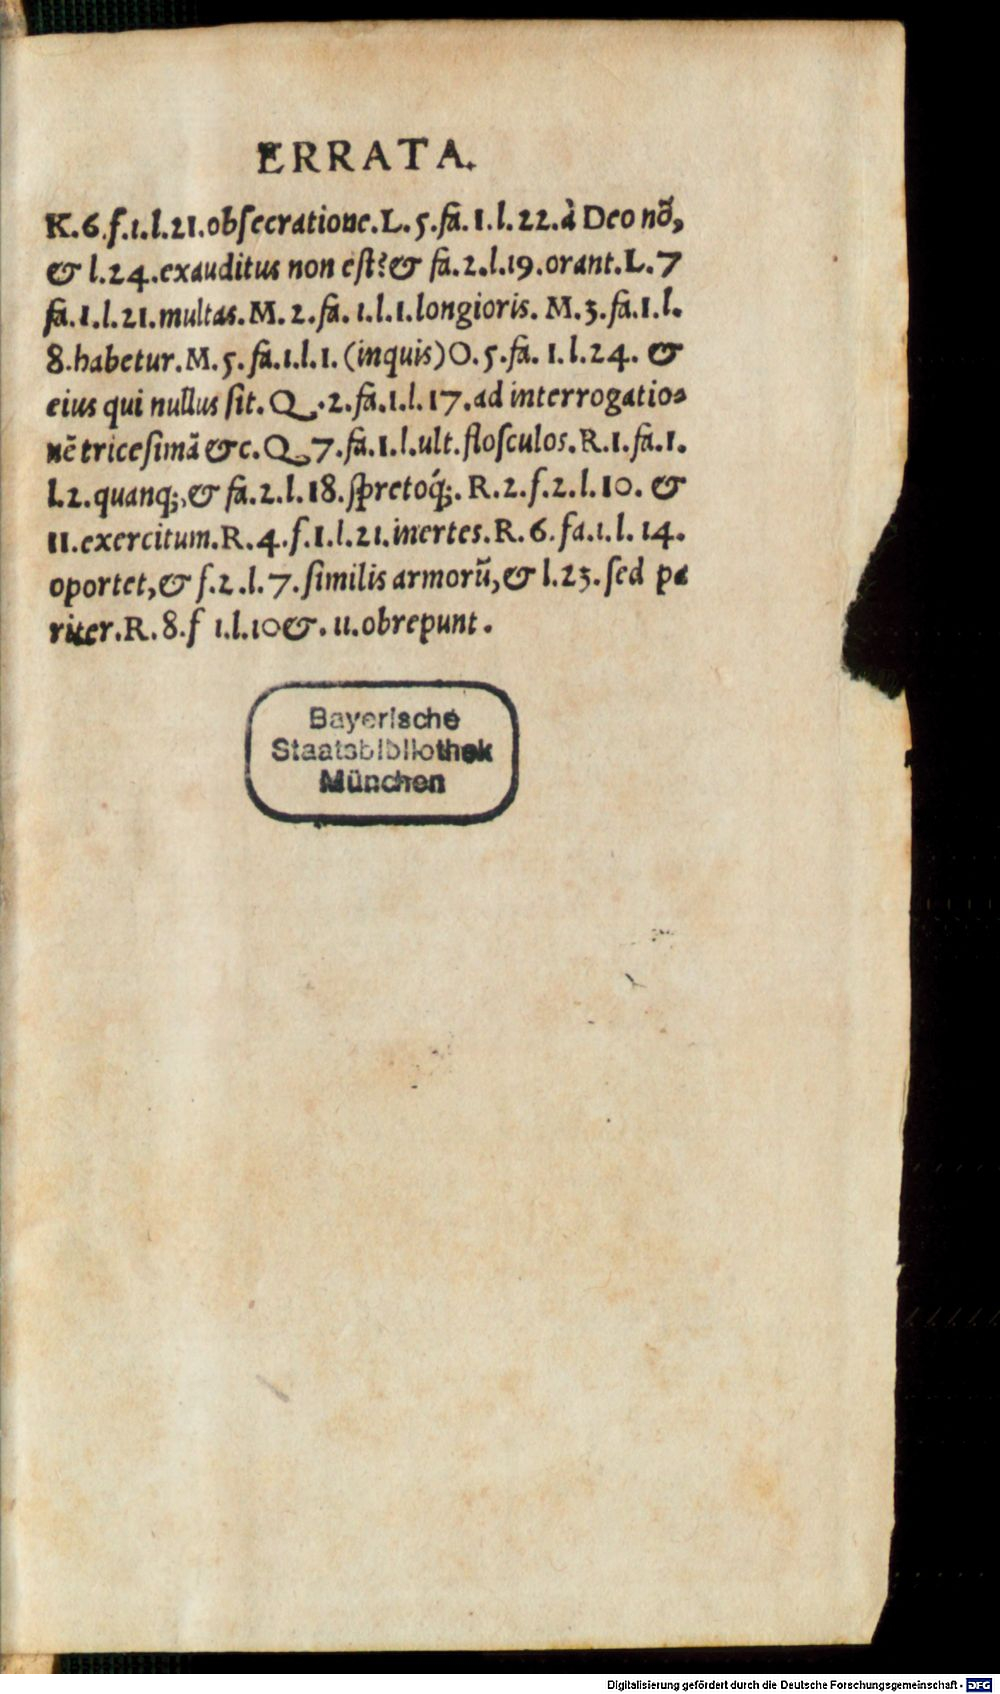 ERRATA.
K.6.f.1.l.21.obſecratione.L.5.fa.1.l.22.à Deo nõ,
& l.24.exauditus non eſt?& fa.2.l.19.orant.L.7
fa.1.l.21.multas.M.2.fa.1.l.1.longioris. M.3.fa.1.l.
8.habetur.M.5.fa.1.l.1.(inquis)O.5.fa.1.l.24. &
eius qui nullus ſit.Q.2.fa.1.l.17.ad interrogatio⸗
nẽ triceſimã &c.Q.7.fa.1.l.ult.floſculos.R.1.fa.1.
l.2.quanq;,& fa.2.l.18.ſpretoq́;. R.2.f.2.l.10. &
11.exercitum.R.4.f.1.l.21.inertes.R.6.fa.1.l.14.
oportet,& f.2.l.7.ſimilis armorũ,& l.23.ſed pa
riter.R.8.f 1.l.10&.11.obrepunt.
Bayerische
Staatsbibliothek
München
Digitalisierung gefördert durch die Deutsche Forschungsgemeinschaft - DFG